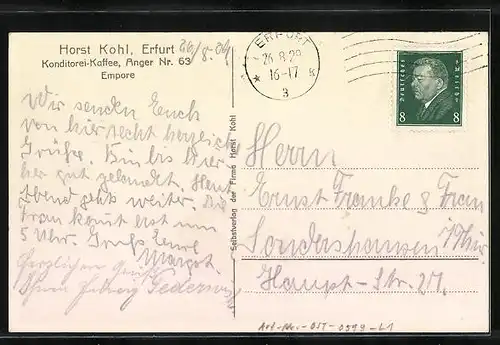 Horst Kohl, Erfurt 26/8.29
Konditorei-Kaffee, Anger Nr. 63
Empore
Wir senden Euch
von hier recht herzliche
Grüße. Bin bis hier
her gut gelandet. Heut
Abend gehts weiter.
Frau kommt erst um
5 Uhr. Gruß Eure
Margot.
Herzlichen Gruß
ERFURT
26.8.29
16-17
* 3 *
Deutsches Reich
8 8
Selbstverlag der Firma Horst Kohl
Herrn
Ernst Franke & Frau
Sondershausen i/Thür.
Haupt-Str. 24.
Art-Nr.-OST-0599-L1